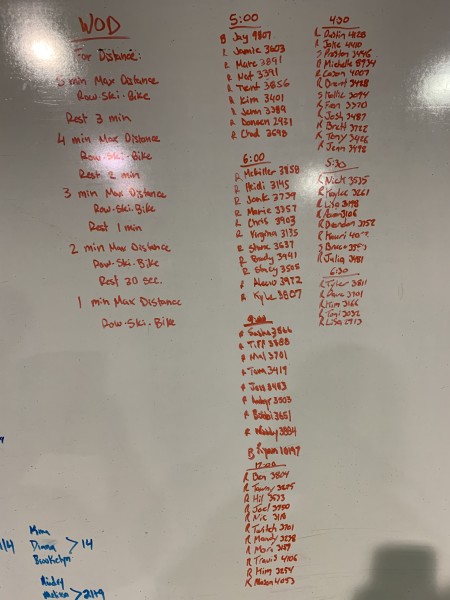 WOD
For Distance:
5 min Max Distance
Row-Ski-Bike
Rest 3 min
4 min Max Distance
Row-Ski-Bike
Rest 2 min
3 min Max Distance
Row-Ski-Bike
Rest 1 min
2 min Max Distance
Row-Ski-Bike
Rest 30 sec.
1 min Max Distance
Row-Ski-Bike
5:00
B Jay 9807
R Jamie 3603
R Marc 3891
R Nat 3391
R Trent 3856
R Kim 3401
R Jenn 3389
R Doreen 2931
R Chad 3698
6:00
R McKiller 3858
R Heidi 3145
R Jank 3739
R Marie 3357
R Chris 3903
R Virginia 3135
R Shane 3637
R Brady 3441
R Stacy 3505
R Mario 3972
R Kyle 3807
9:00
R Sasha 3866
R Tiff 3888
R Mel 3701
R Tom 3419
R Jess 3483
R 3503
R Bobbi 3651
R 3884
B Ryan 10197
12:00
R Ben 3804
R Tawny 3225
R Hil 3573
R Joel 3750
R Nic 3110
R Twitch 3701
R Mandy 3238
R Mari 3187
R Travis 4106
R Kim 3254
R Mason 4053
4:30
R 4128
R Jake 4410
S Preston 3446
B Michelle 8734
R Cason 4007
R Brent 3428
S Hollie 3094
R 3370
R Josh 3487
R Brett 3722
R Tony 3426
R Jenn 3498
5:30
R Nick 3535
R Kaylee 3261
R Lisa 3198
R 3106
R Brandon 3752
R Kauri
S Bruce
R Julia 3481
6:30
R Tyler 3811
R Dave 3701
R Kim 3166
R Toni 3032
R Lisa 2713
114
Mom
Diana > 14
Brooklyn
Audry
Melissa > 2119